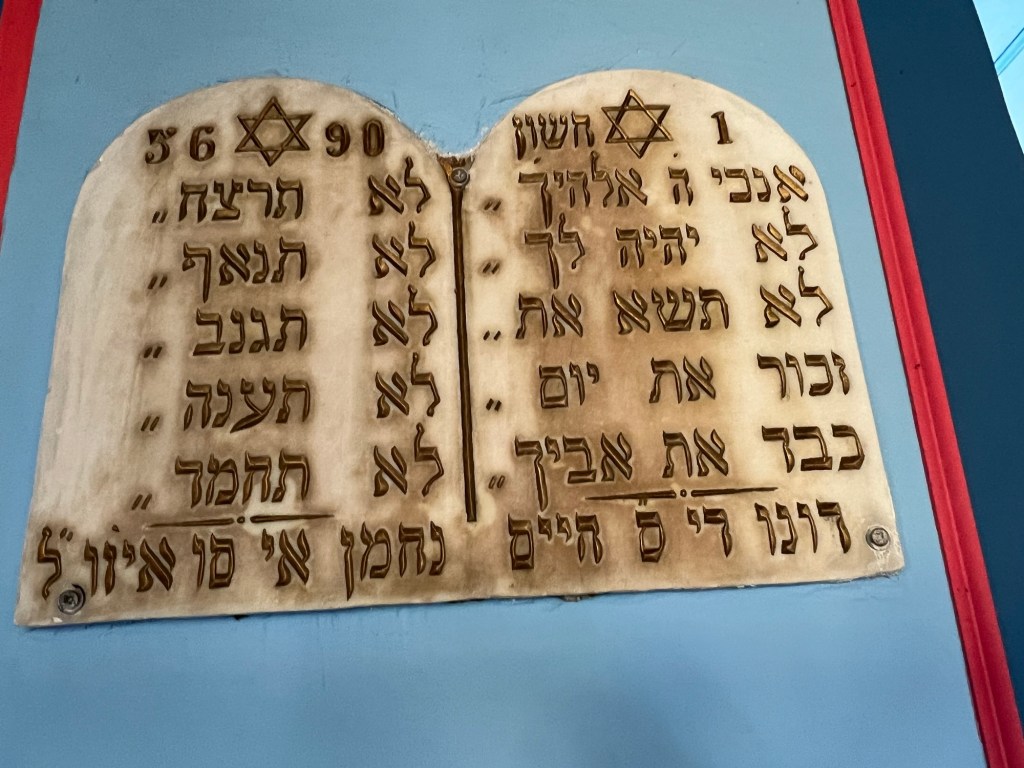 1 חשון
אנכי ה' אלהיך "
לא יהיה לך "
לא תשא את "
זכור את יום "
כבד את אביך "
56 90
לא תרצח "
לא תנאף "
לא תגנב "
לא תענה "
לא תחמד "
דונו די ס' חיים נחמן אי סו איז'ו ז"ל